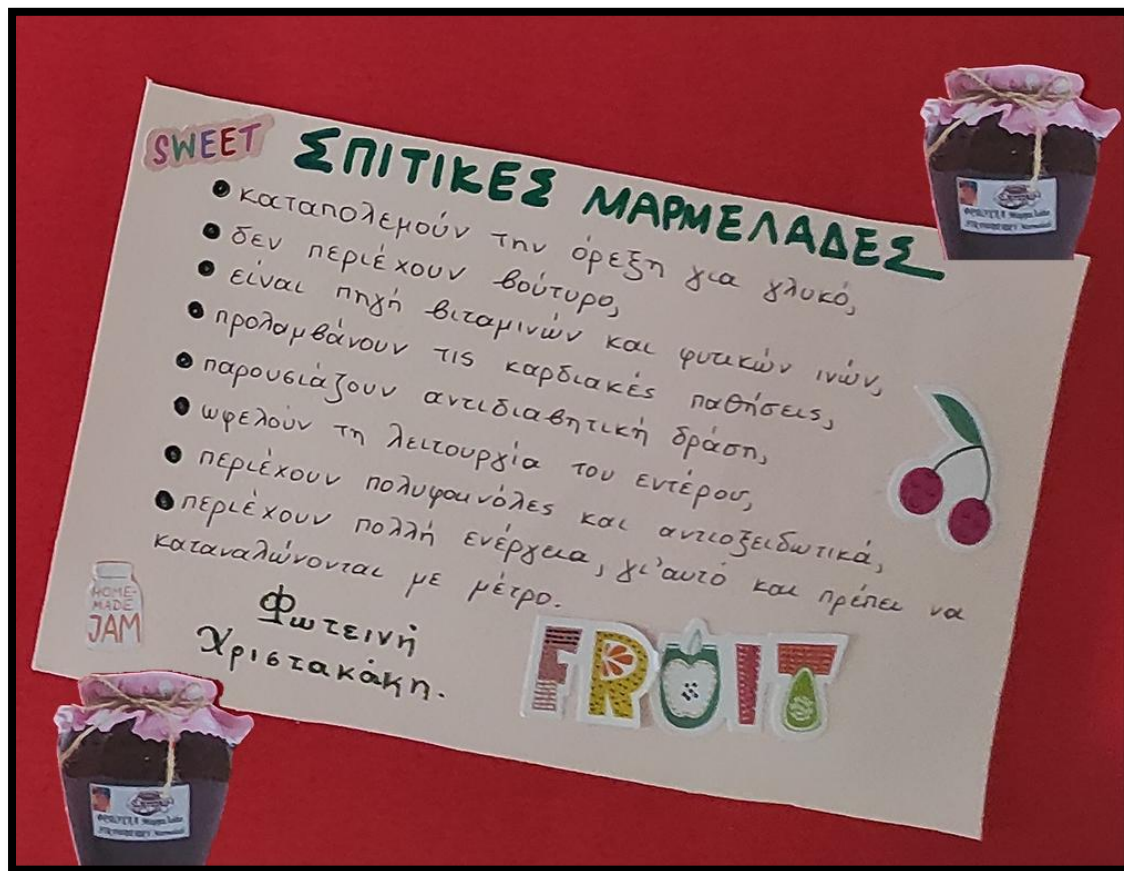 SWEET
ΣΠΙΤΙΚΕΣ ΜΑΡΜΕΛΑΔΕΣ
• καταπολεμούν την όρεξη για γλυκό,
• δεν περιέχουν βούτυρο,
• είναι πηγή βιταμινών και φυτικών ινών,
• προλαμβάνουν τις καρδιακές παθήσεις,
• παρουσιάζουν αντιδιαβητική δράση,
• ωφελούν τη λειτουργία του εντέρου,
• περιέχουν πολυφαινόλες και αντιοξειδωτικά,
• περιέχουν πολλή ενέργεια, γι'αυτό και πρέπει να
καταναλώνονται με μέτρο.
HOME-
MADE
JAM
Φωτεινή
Χριστακάκη.
FRUIT